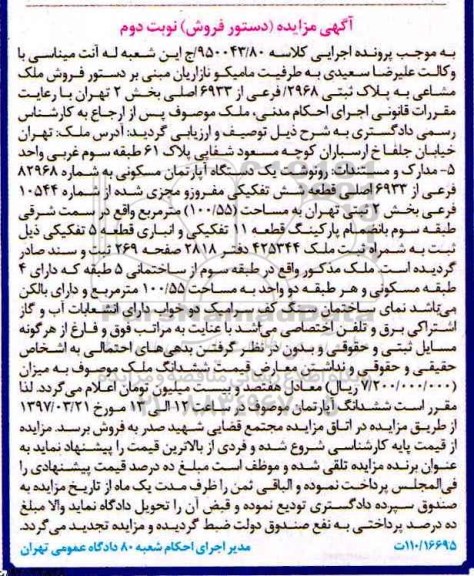 آگهی مزایده (دستور فروش) نوبت دوم
به موجب پرونده اجرایی کلاسه ۹۵۰۰۴۳/۸۰/ج این شعبه له آنت میناسی با
وکالت علیرضا سعیدی به طرفیت مامیکو نازاریان مبنی بر دستور فروش ملک
مشاعی به پلاک ثبتی ۲۹۶۸/ فرعی از ۶۹۳۳ اصلی بخش ۲ تهران با رعایت
مقررات قانونی اجرای احکام مدنی، ملک موصوف پس از ارجاع به کارشناس
رسمی دادگستری به شرح ذیل توصیف و ارزیابی گردید: آدرس ملک: تهران
خیابان جلفا خ ارسباران کوچه مسعود شفایی پلاک ۶۱ طبقه سوم غربی واحد
۵- مدارک و مستندات: رونوشت یک دستگاه آپارتمان مسکونی به شماره ۸۲۹۶۸
فرعی از ۶۹۳۳ اصلی قطعه شش تفکیکی مفروزو مجزی شده از شماره ۱۰۵۴۴
فرعی بخش ۲ ثبتی تهران به مساحت (۱۰۰/۵۵) مترمربع واقع در سمت شرقی
طبقه سوم بانضمام پارکینگ قطعه ۱۱ تفکیکی و انباری قطعه ۵ تفکیکی ذیل
ثبت به شماره ثبت ملک ۴۲۵۳۴۴ دفتر ۲۸۱۸ صفحه ۲۶۹ ثبت و سند صادر
گردیده است. ملک مذکور واقع در طبقه سوم از ساختمانی ۵ طبقه که دارای ۴
طبقه مسکونی و هر طبقه دو واحد به مساحت ۱۰۰/۵۵ مترمربع و دارای بالکن
می‌باشد نمای ساختمان سنگ کف سرامیک دو خواب دارای انشعابات آب و گاز
اشتراکی برق و تلفن اختصاصی می‌باشد با عنایت به مراتب فوق و فارغ از هرگونه
مسایل ثبتی و حقوقی و بدون در نظر گرفتن بدهی‌های احتمالی به اشخاص
حقیقی و حقوقی و نداشتن معارض قیمت ششدانگ ملک موصوف به میزان
(۷/۲۰۰/۰۰۰/۰۰۰ ریال) معادل هفتصد و بیست میلیون تومان اعلام می‌گردد. لذا
مقرر است ششدانگ آپارتمان موصوف در ساعت ۱۲ الی ۱۳ مورخ ۱۳۹۷/۰۳/۲۱
از طریق مزایده در اتاق مزایده مجتمع قضایی شهید صدر به فروش برسد. مزایده
از قیمت پایه کارشناسی شروع شده و فردی از بالاترین قیمت را پیشنهاد نماید به
عنوان برنده مزایده تلقی شده و موظف است مبلغ ده درصد قیمت پیشنهادی را
فی‌المجلس پرداخت نموده و الباقی ثمن را ظرف مدت یک ماه از تاریخ مزایده به
صندوق سپرده دادگستری تودیع نموده و قبض آن را تحویل دادگاه نماید والا مبلغ
ده درصد پرداختی به نفع صندوق دولت ضبط گردیده و مزایده تجدید می‌گردد.
۱۱۰/۱۶۶۹۵ت مدیر اجرای احکام شعبه ۸۰ دادگاه عمومی تهران